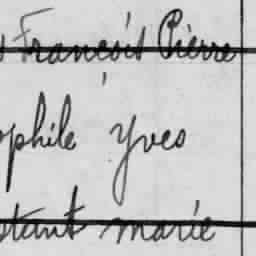 François Pierre
ophile Yves
stant marie